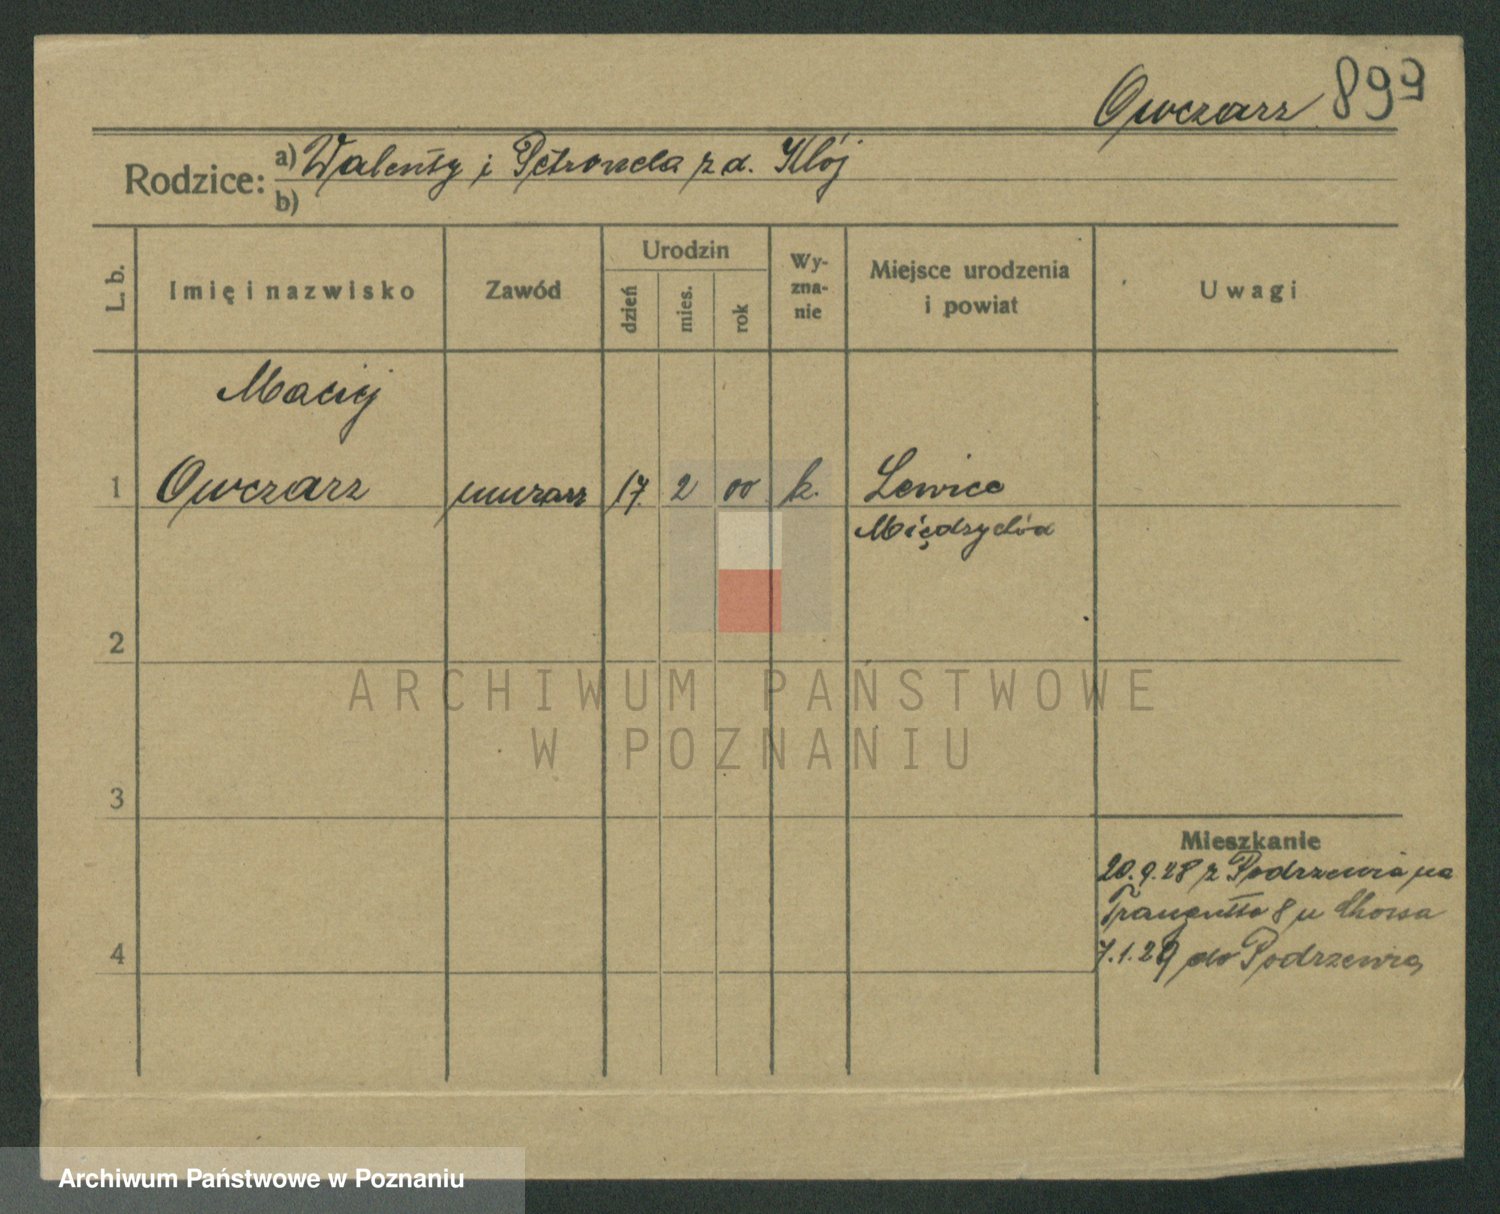 Owczarz 899
Rodzice: a) Walenty i Petronela z d. Klój
b)
L. b.
Imię i nazwisko
Zawód
Urodzin
dzień
mies.
rok
Wy-
zna-
nie
Miejsce urodzenia
i powiat
Uwagi
Maciej
1 Owczarz murarz 17. 2 00 k. Lewice
Międzychód
2
ARCHIWUM PAŃSTWOWE
W POZNANIU
3
Mieszkanie
20.9.28 z Podrzewia na
8 u
4
7.1.29 do Podrzewia
Archiwum Państwowe w Poznaniu